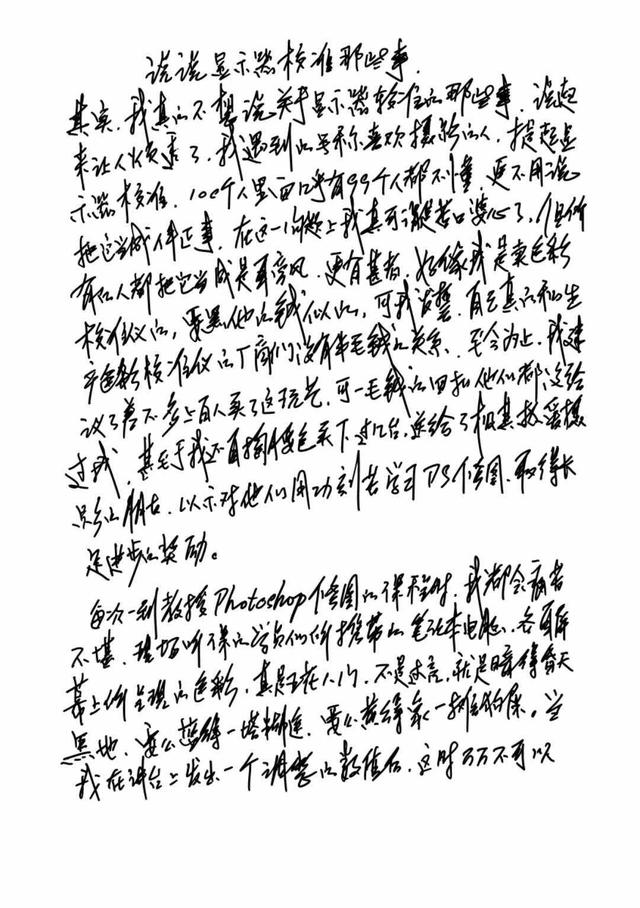 说说显示器校准那些事
其实,我真的不想说关于显示器校准的那些事,说起
来让人烦透了,我遇到的号称喜欢摄影的人,提起显
示器校准,100个人里面几乎有99个人都不懂,更不用说
把它当成件正事,在这一问题上我真可谓是苦口婆心了,但所
有的人都把它当成是耳旁风,更有甚者,好像我是卖色彩
校准仪的,要黑他的钱似的,可我发誓,自己真的和生
产色彩校准仪的厂商们没有半毛钱的关系,至今为止,我建
议了差不多上百人买了这玩艺,可一毛钱的回扣他们都没给
过我,甚至于我还自掏腰包买下过几台,送给了极其热爱摄
影的朋友,以示对他们用功刻苦学习PS修图,取得长
足进步的奖励。
每次一到教授Photoshop修图的课程时,我都会痛苦
不堪,现场听课的学员们所携带的笔记本电脑,各自屏
幕上所呈现的色彩,真是五花八门,不是过亮,就是暗得昏天
黑地,要么蓝得一塌糊涂,要么黄得象一,当
我在讲台上发出一个调整的数值后,这时万万不可以